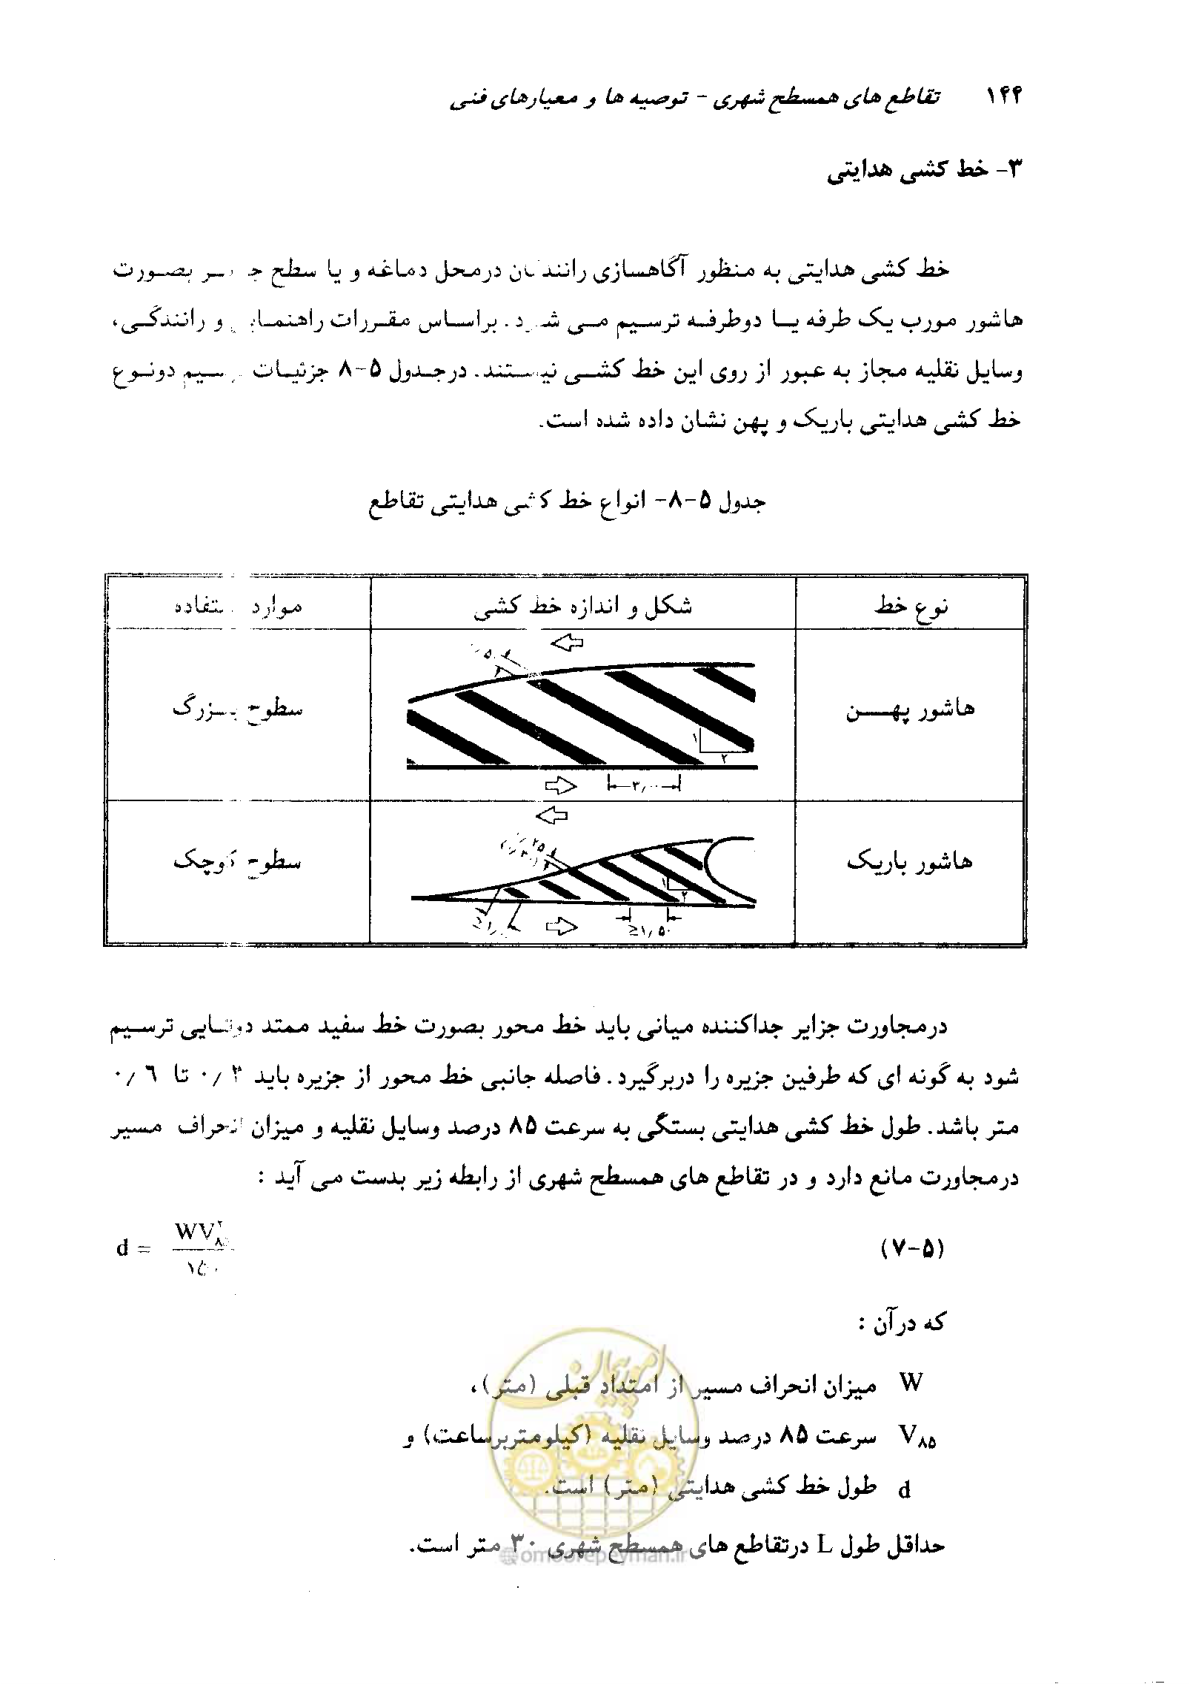 ۱۴۴ تقاطع های همسطح شهری - توصیه ها و معیارهای فنی
۳- خط کشی هدایتی
خط کشی هدایتی به منظور آگاهسازی رانندگان درمحل دماغه و یا سطح بصورت
هاشور مورب یک طرفه یا دوطرفه ترسیم می شود. براساس مقررات راهنمایی و رانندگی،
وسایل نقلیه مجاز به عبور از روی این خط کشی نیستند. درجدول ۵-۸ جزئیات ترسیم دونوع
خط کشی هدایتی باریک و پهن نشان داده شده است.
جدول ۵-۸- انواع خط کشی هدایتی تقاطع
نوع خط شکل و اندازه خط کشی موارد استفاده
هاشور پهن سطوح بزرگ
۱
۲
۳٫۰۰
هاشور باریک سطوح کوچک
۱
۲
≥۱٫۵۰
درمجاورت جزایر جداکننده میانی باید خط محور بصورت خط سفید ممتد دوتایی ترسیم
شود به گونه ای که طرفین جزیره را دربرگیرد. فاصله جانبی خط محور از جزیره باید تا ۰/۶
متر باشد. طول خط کشی هدایتی بستگی به سرعت ۸۵ درصد وسایل نقلیه و میزان انحراف مسیر
درمجاورت مانع دارد و در تقاطع های همسطح شهری از رابطه زیر بدست می آید :
(۵-۷) d = WV۲۸۵ / ۱۵۰
که درآن :
W میزان انحراف مسیر از امتداد قبلی (متر)،
V۸۵ سرعت ۸۵ درصد وسایل نقلیه (کیلومتربرساعت) و
d طول خط کشی هدایتی (متر) است.
حداقل طول L درتقاطع های همسطح شهری ۳۰ متر است.
امور پیمان
@omoorepeyman.ir